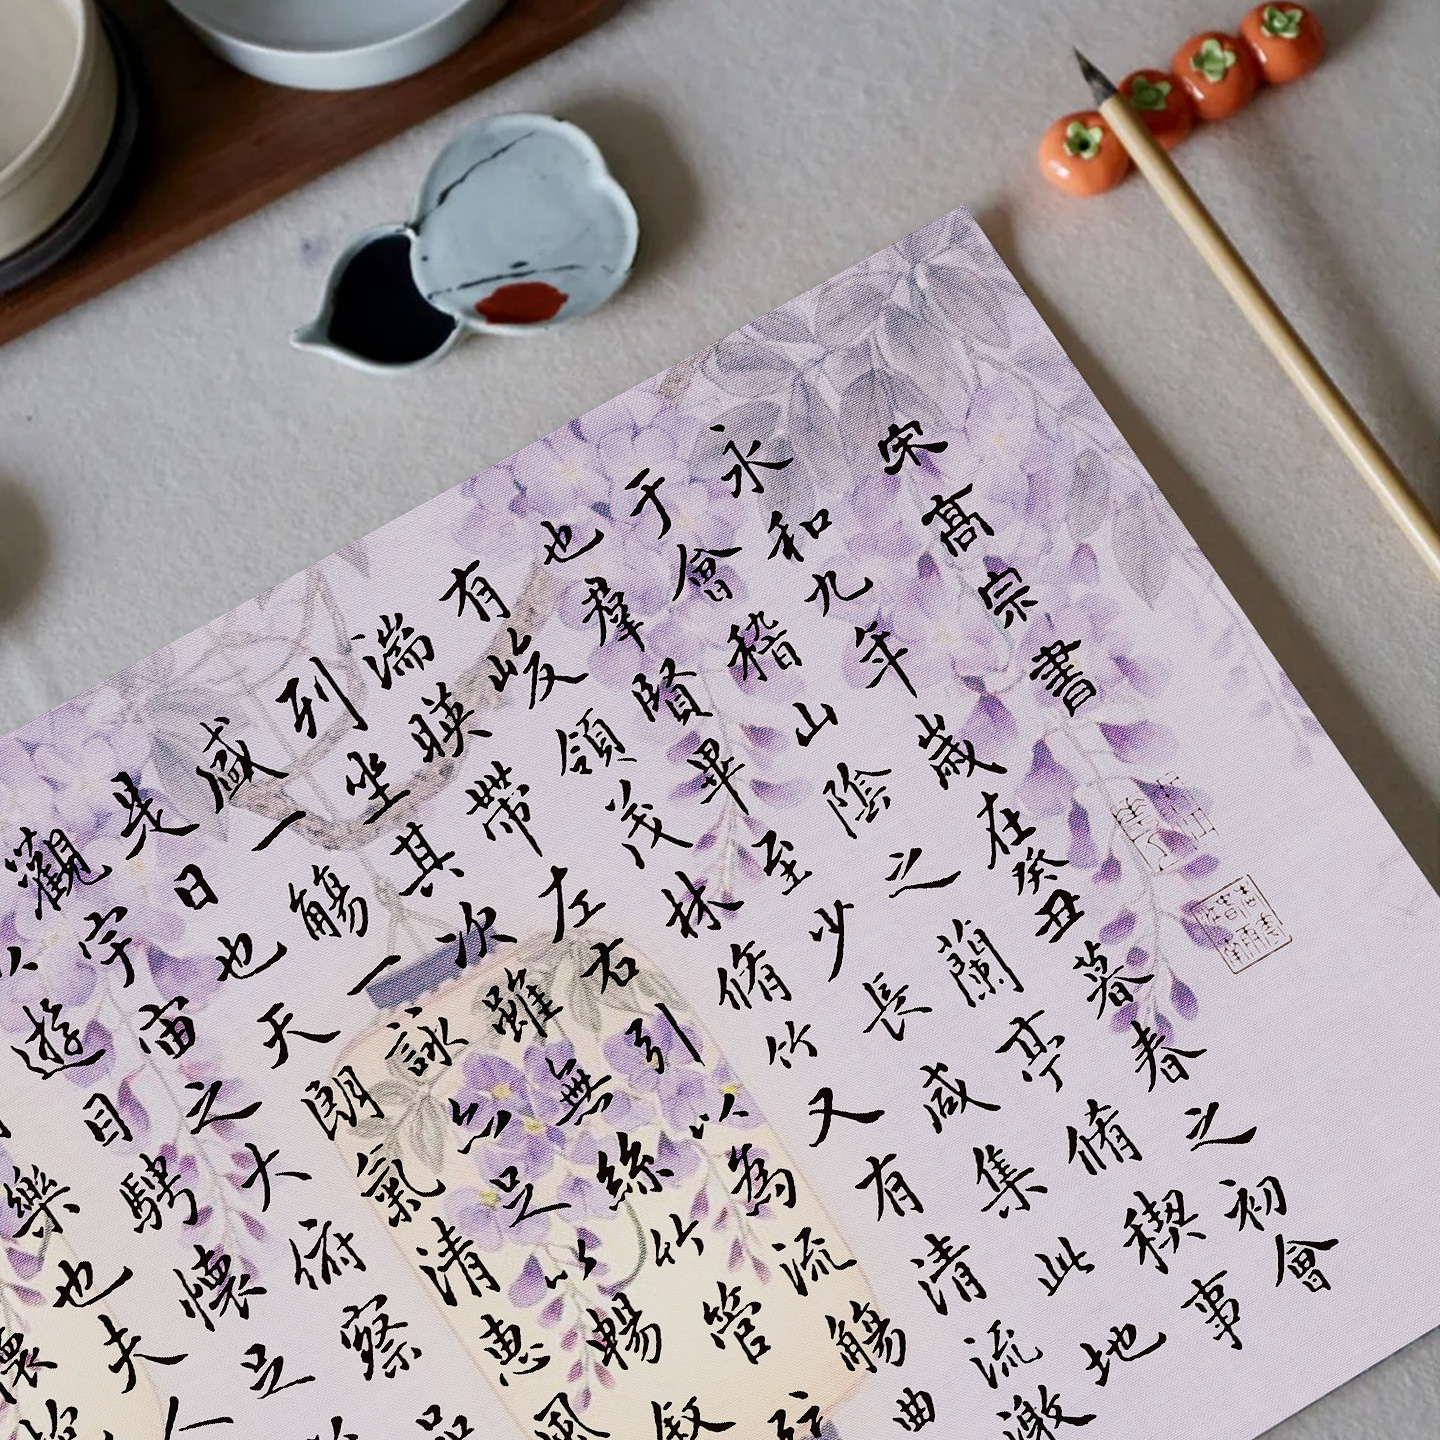 宋髙宗書
永和九年歲在癸丑暮春之初會
于會稽山陰之蘭亭脩稧事
也羣賢畢至少長咸集此地
有峻領茂林脩竹又有清流激
湍暎帶左右引以為流觴曲
列坐其次雖無絲竹管弦
盛一觴一詠亦足以暢敘
是日也天朗氣清惠風
觀宇宙之大俯察品
遊目騁懷足
樂也夫人
懷